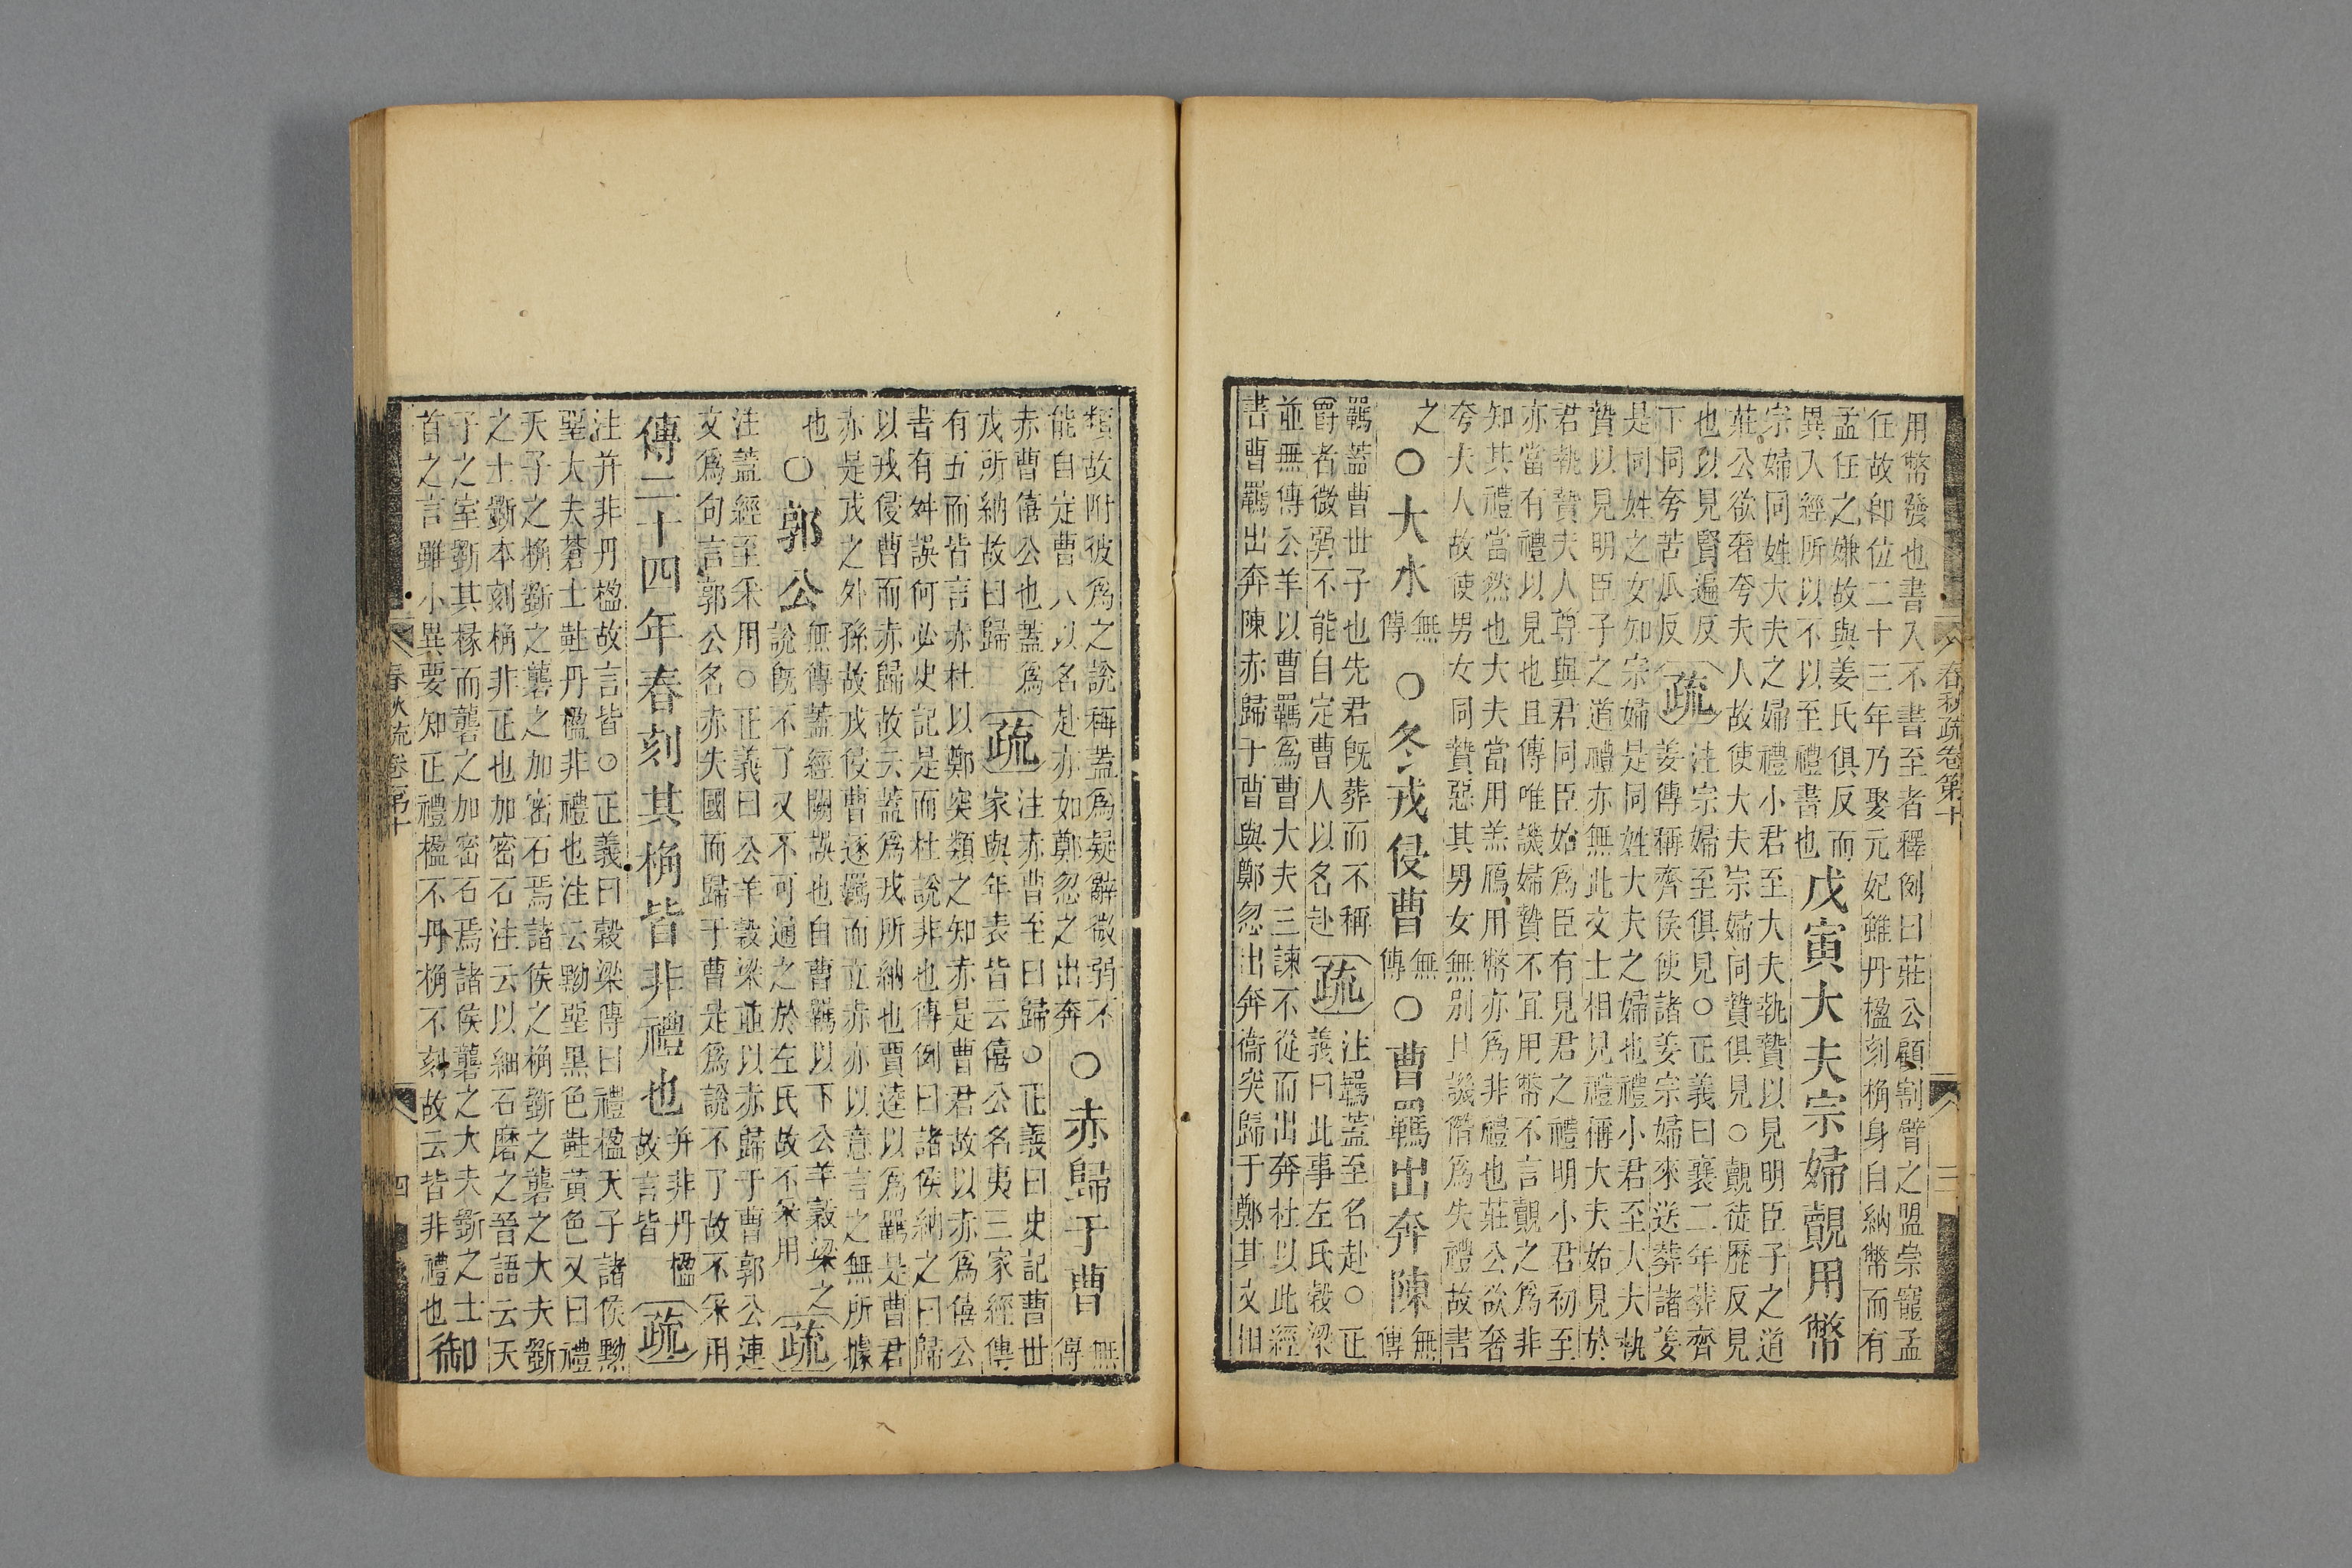 春秋疏卷第十 三
用幣發也書入不書至者釋例曰莊公顧割臂之盟崇寵孟
任故卽位二十三年乃娶元妃雖丹楹刻桷身自納幣而有
孟任之嫌故與姜氏俱反而
異入經所以不以至禮書也
戊寅大夫宗婦覿用幣
宗婦同姓大夫之婦禮小君至大夫執贄以見明臣子之道
莊公欲奢夸夫人故使大夫宗婦同贄俱見○覿徒歷反見
也以見賢遍反
下同夸苦瓜反
疏
注宗婦至俱見○正義曰襄二年葬齊
姜傳稱齊侯使諸姜宗婦來送葬諸姜
是同姓之女知宗婦是同姓大夫之婦也禮小君至大夫執
贄以見明臣子之道禮亦無此文士相見禮稱大夫始見於
君執贄夫人尊與君同臣始爲臣有見君之禮明小君初至
亦當有禮以見也且傳唯譏婦贄不宜用幣不言覿之爲非
知其禮當然也大夫當用羔鴈用幣亦爲非禮也莊公欲奢
夸夫人故使男女同贄惡其男女無別且譏僭爲失禮故書
之
○大水無傳○冬戎侵曹無傳○曹羈出奔陳無傳
羈蓋曹世子也先君旣葬而不稱
爵者微弱不能自定曹人以名赴
疏
注羈蓋至名赴○正
義曰此事左氏穀梁
並無傳公羊以曹羈爲曹大夫三諫不從而出奔杜以此經
書曹羈出奔陳赤歸于曹與鄭忽出奔衞突歸于鄭其文相
類故附彼爲之說稱蓋爲疑辭微弱不
能自定曹人以名赴亦如鄭忽之出奔
○赤歸于曹無傳
赤曹僖公也蓋爲
戎所納故曰歸
疏
注赤曹至曰歸○正義曰史記曹世
家與年表皆云僖公名夷三家經傳
有五而皆言赤杜以鄭突類之知赤是曹君故以赤爲僖公
書有舛誤何必史記是而杜說非也傳例曰諸侯納之曰歸
以戎侵曹而赤歸故云蓋爲戎所納也賈逵以爲羈是曹君
亦是戎之外孫故戎侵曹逐羈而立赤亦以意言之無所據
也
○郭公
無傳蓋經闕誤也自曹羈以下公羊穀梁之
說旣不了又不可通之於左氏故不采用
疏
注蓋經至采用○正義曰公羊穀梁並以赤歸于曹郭公連
文爲句言郭公名赤失國而歸于曹是爲說不了故不采用
傳二十四年春刻其桷皆非禮也
并非丹楹
故言皆
疏
注并非丹楹故言皆○正義曰穀梁傳曰禮楹天子諸侯黝
堊大夫蒼士黈丹楹非禮也注云黝堊黑色黈黃色又曰禮
天子之桷斲之礱之加密石焉諸侯之桷斲之礱之大夫斲
之士斲本刻桷非正也加密石注云以細石磨之晉語云天
子之室斲其椽而礱之加密石焉諸侯礱之大夫斲之士
首之言雖小異要知正禮楹不丹桷不刻故云皆非禮也
御
春秋疏卷第十 四